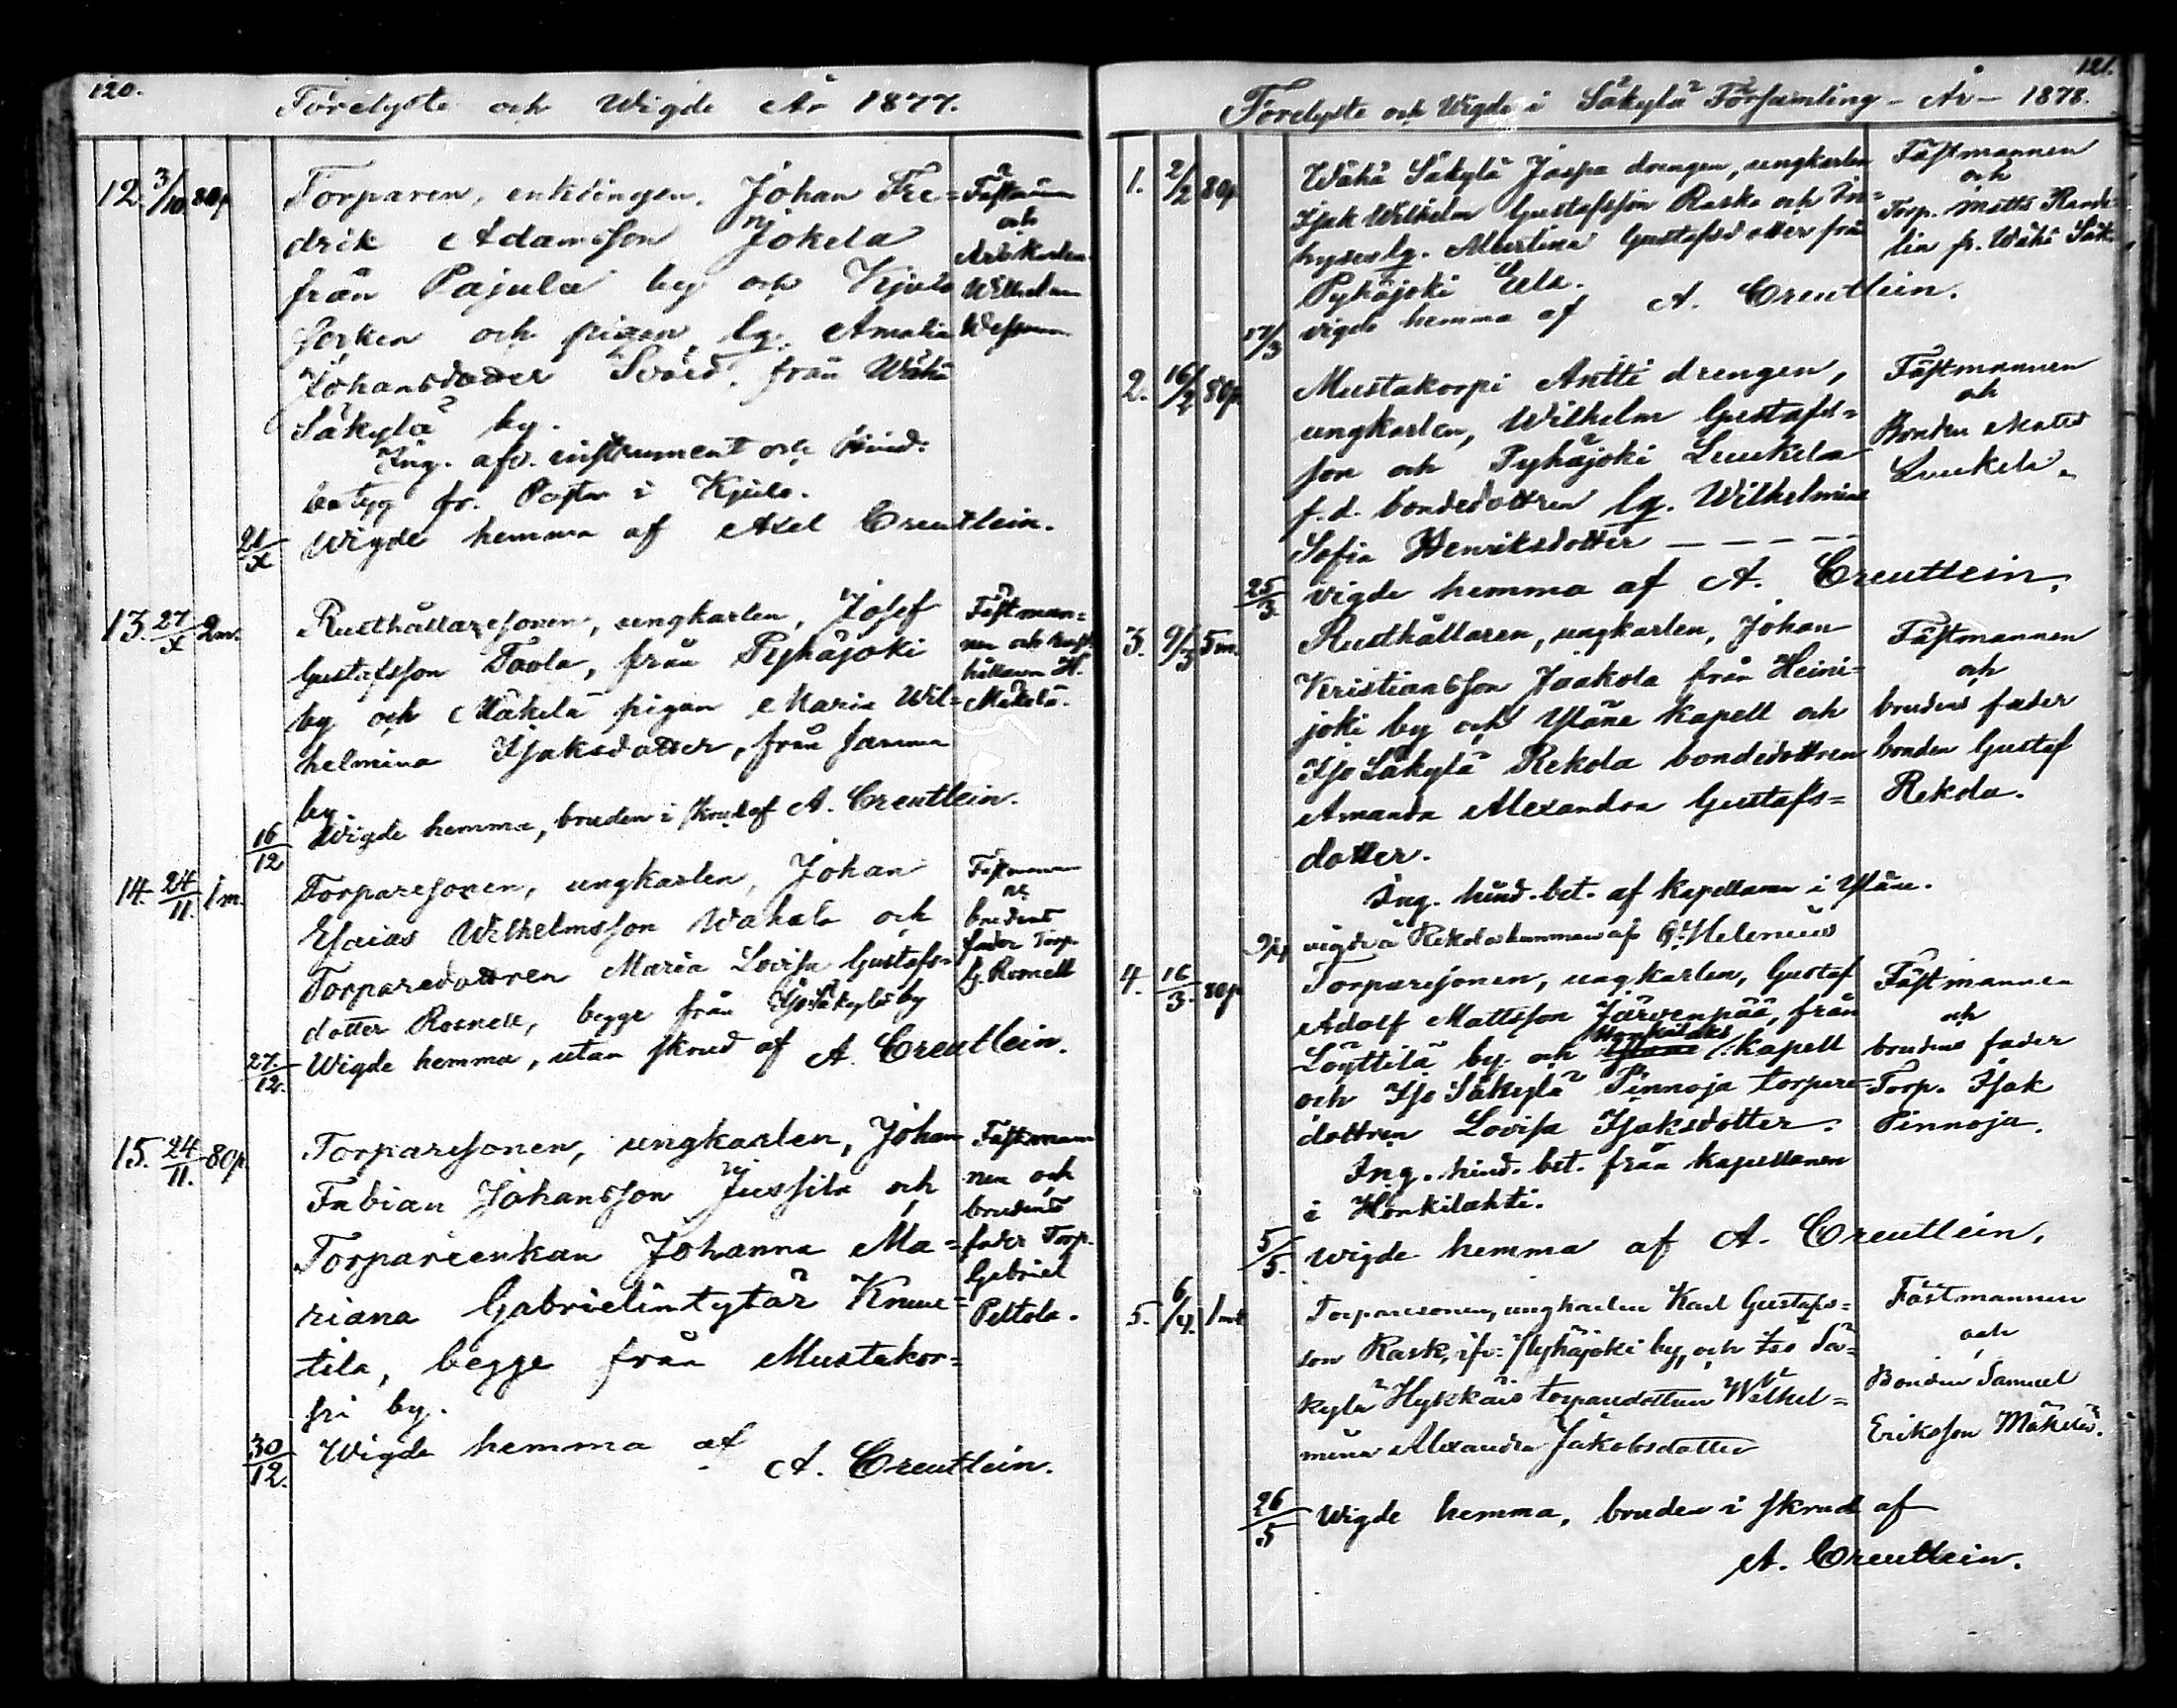 120.
Förelyste och Wigde År 1877.
12. 3/10. 80p. Torparen, enklingen, Johan Fre=
drik Adamsson Jokela
från Pajula by och Kjulo
socken och pigan, lg. Amalia
Johansdotter Svärd, från Wähä
Säkylä by.
Ing. afv. instrument och hind.
betyg fr. Pastor i Kjulo.
21/X Wigde hemma af Axel Creutlein.
och
Wilhelm
13. 27/X 2m. Rusthållaresonen, ungkarlen, Josef
Gustafsson Tavla, från Pyhäjoki
by och Mäkelä pigan Maria Wil=
helmina Isaksdotter, från samma
by.
16/12 Wigde hemma, bruden i skrud af A. Creutlein.
Fästman=
nen och rust
hållaren H.
Mäkelä.
14. 24/11. 1m. Torparesonen, ungkarlen, Johan
Esaias Wilhelmsson Wahala och
Torparedottren Maria Lovisa Gustafs=
dotter Rosnell, begge från Iso Säkylä by
27./12. Wigde hemma, utan skrud af A. Creutlein.
Fästmannen
brudens
fader Torp.
G. Rosnell
15. 24/11. 80p. Torparesonen, ungkarlen, Johan
Fabian Johansson Jussila och
Torpareenkan Johanna Ma=
riana Gabrielintytär Knuu=
tila, begge från Mustakor=
pi by.
30/12. Wigde hemma af
A. Creutlein.
Fästman
nen och
brudens
fader Torp.
Gabriel
Peltola.
121.
Förelyste och Wigde i Säkylä Församling - År - 1878.
1. 2/2 80p Wähä Säkylä Jaspa drengen, ungkarlen
Isak Wilhelm Gustafsson Raska och In=
hyses lg. Albertina Gustafsdotter från
Pyhäjoki Eela.
17/3 vigde hemma af A. Creutlein.
Fästmannen
och
Torp. Matts Rand=
lin fr. Wähä Säk.
2. 16/2 80p. Mustakorpi Antti drengen,
ungkarlen, Wilhelm Gustafs=
son och Pyhäjoki Luukela
f.d. bondedottren lg. Wilhelmina
Sofia Henriksdotter — — — — —
25/3. vigde hemma af A. Creutlein.
Fästmannen
och
Bonden Matts
Luukela.
3. 9/3 5m. Rusthållaren, ungkarlen, Johan
Kristiansson Jaakola från Heini=
joki by och Yläne kapell och
Iso Säkylä Rekola bondedottren
Amanda Alexandra Gustafs=
dotter.
Ing. hind. bet. af kapellanen i Yläne.
vigde å Rekola hemman af G. Helenius
Fästmannen
och
brudens fader
bonden Gustaf
Rekola.
4. 16/3. 80p Torparesonen, ungkarlen, Gustaf
Adolf Mattsson Järvenpää, från
Honkilahti
Löyttilä by och Yläne kapell
och Iso Säkylä Pinnoja torpare=
dottren Lovisa Isaksdotter.
Ing. hind. bet. från kapellanen
i Honkilahti.
5/5. Wigde hemma af A. Creutlein.
Fästmannen
och
brudens fader
Torp. Isak
Pinnoja.
5. 6/4. 1mk Torparesonen, ungkarlen Karl Gustafs=
son Rask, ifr. Pyhäjoki by, och Iso Sä=
kylä Hykkäis torparedottren Wilhel=
mina Alexandra Jakobsdotter
26/5 Wigde hemma, bruden i skrud af
A. Creutlein.
Fästmannen
och
Bonden Samuel
Eriksson Mäkelä.